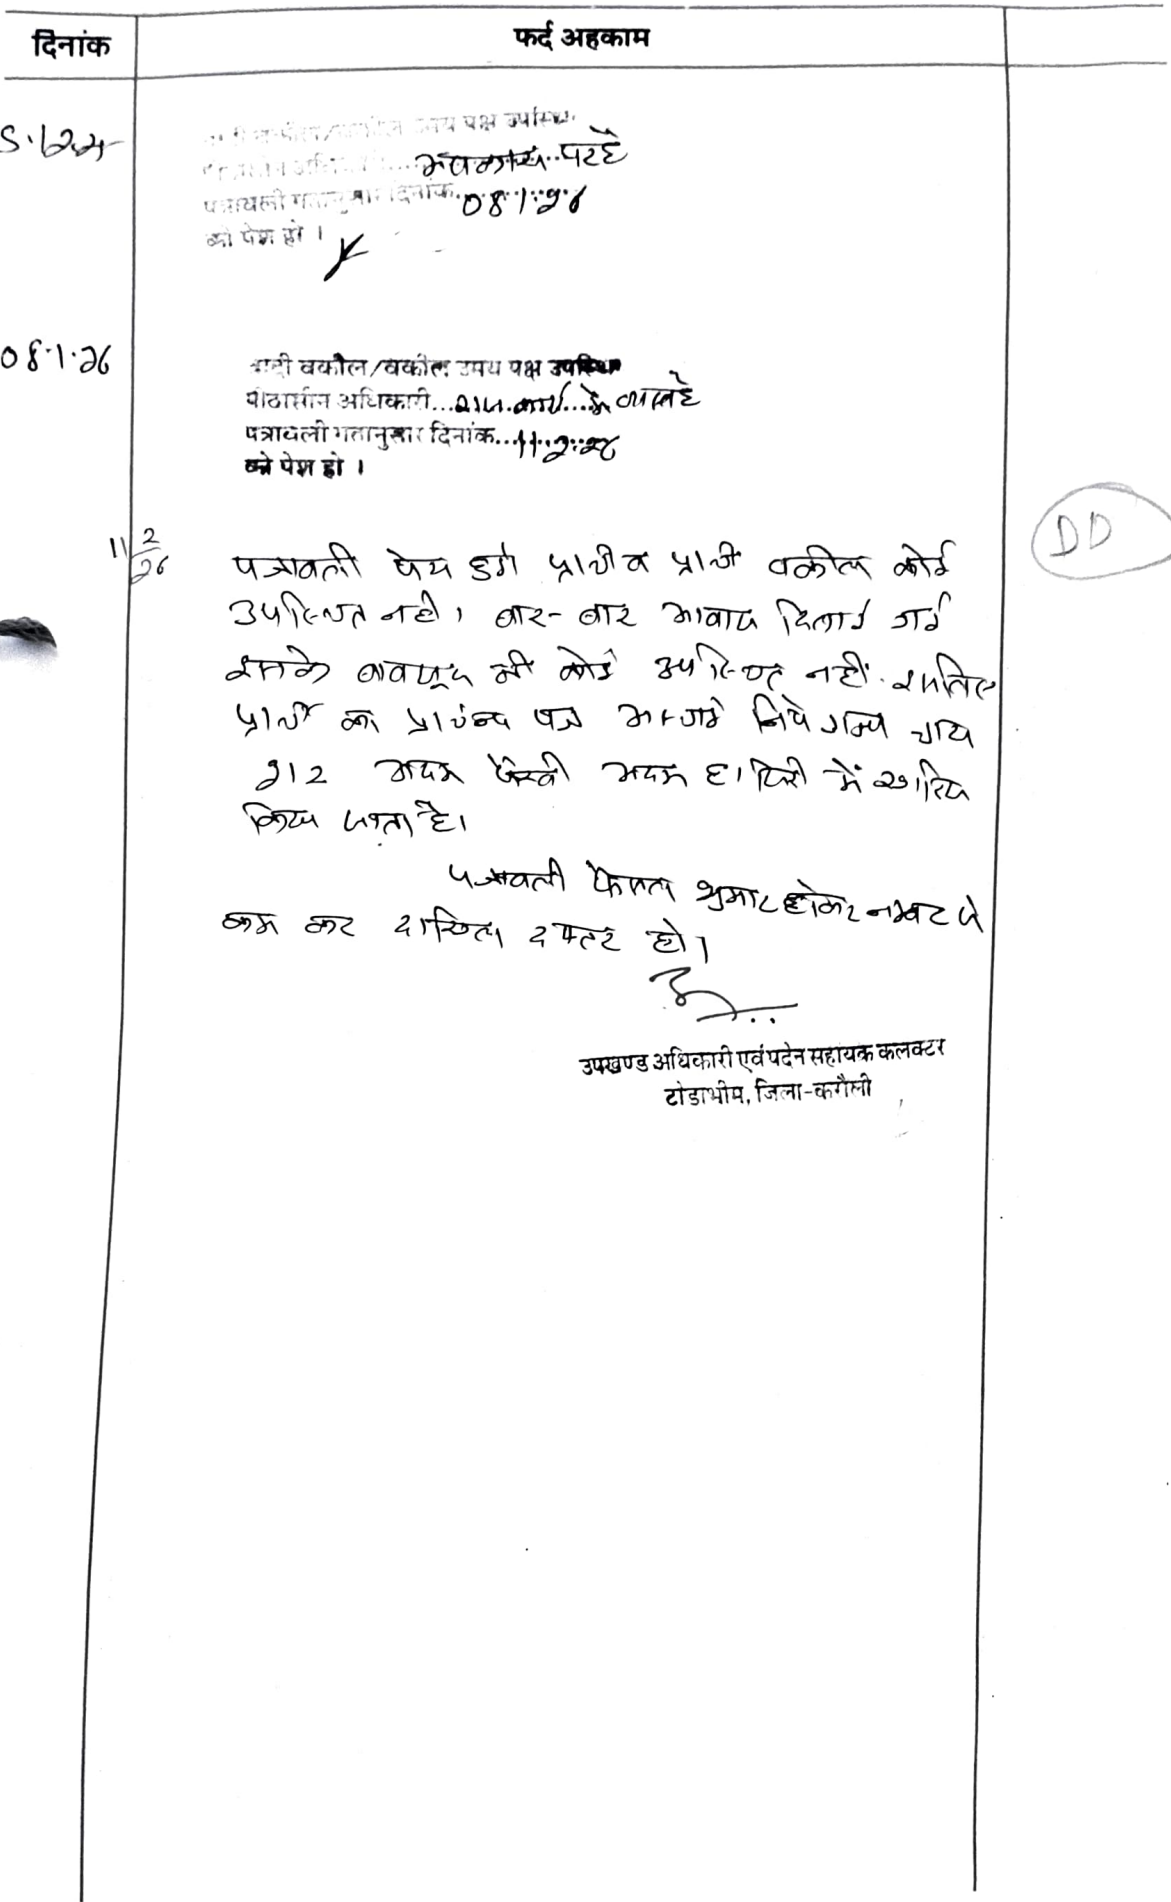 दिनांक
फर्द अहकाम
5.12.25
वकील उभय पक्ष उपस्थित
अवकाश पर है
पत्रावली गतानुसार दिनांक 08.1.26
को पेश हो ।
08.1.26
वादी वकील/वकील उभय पक्ष उपस्थित
पीठासीन अधिकारी...राज. कार्य...में व्यस्त है
पत्रावली गतानुसार दिनांक...11.2.26
को पेश हो ।
11/2/26
DD
पत्रावली पेश हुई प्रार्थी व प्रार्थी वकील कोई
उपस्थित नहीं। बार-बार आवाज दिलाई गई
इसके बावजूद भी कोई उपस्थित नहीं. इसलिए
प्रार्थी का प्रार्थना पत्र अन्तर्गत धारा
212 अदम पैरवी अदम हाजिरी में खारिज
किया जाता है।
पत्रावली फैसल शुमार होकर नम्बर से
कम कर दाखिल दफ्तर हो।
उपखण्ड अधिकारी एवं पदेन सहायक कलक्टर
टोडाभीम, जिला-करौली